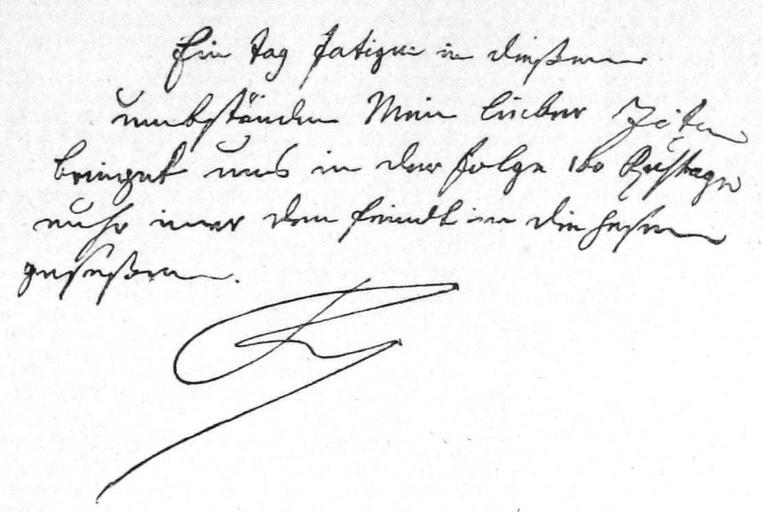 Ein tag fatigue in dießenen
umbständen Mein lieber Ziten
bringet uns in der folge 100 Ruhstage
nuhr imer den feindt in die hesen
geseßen.